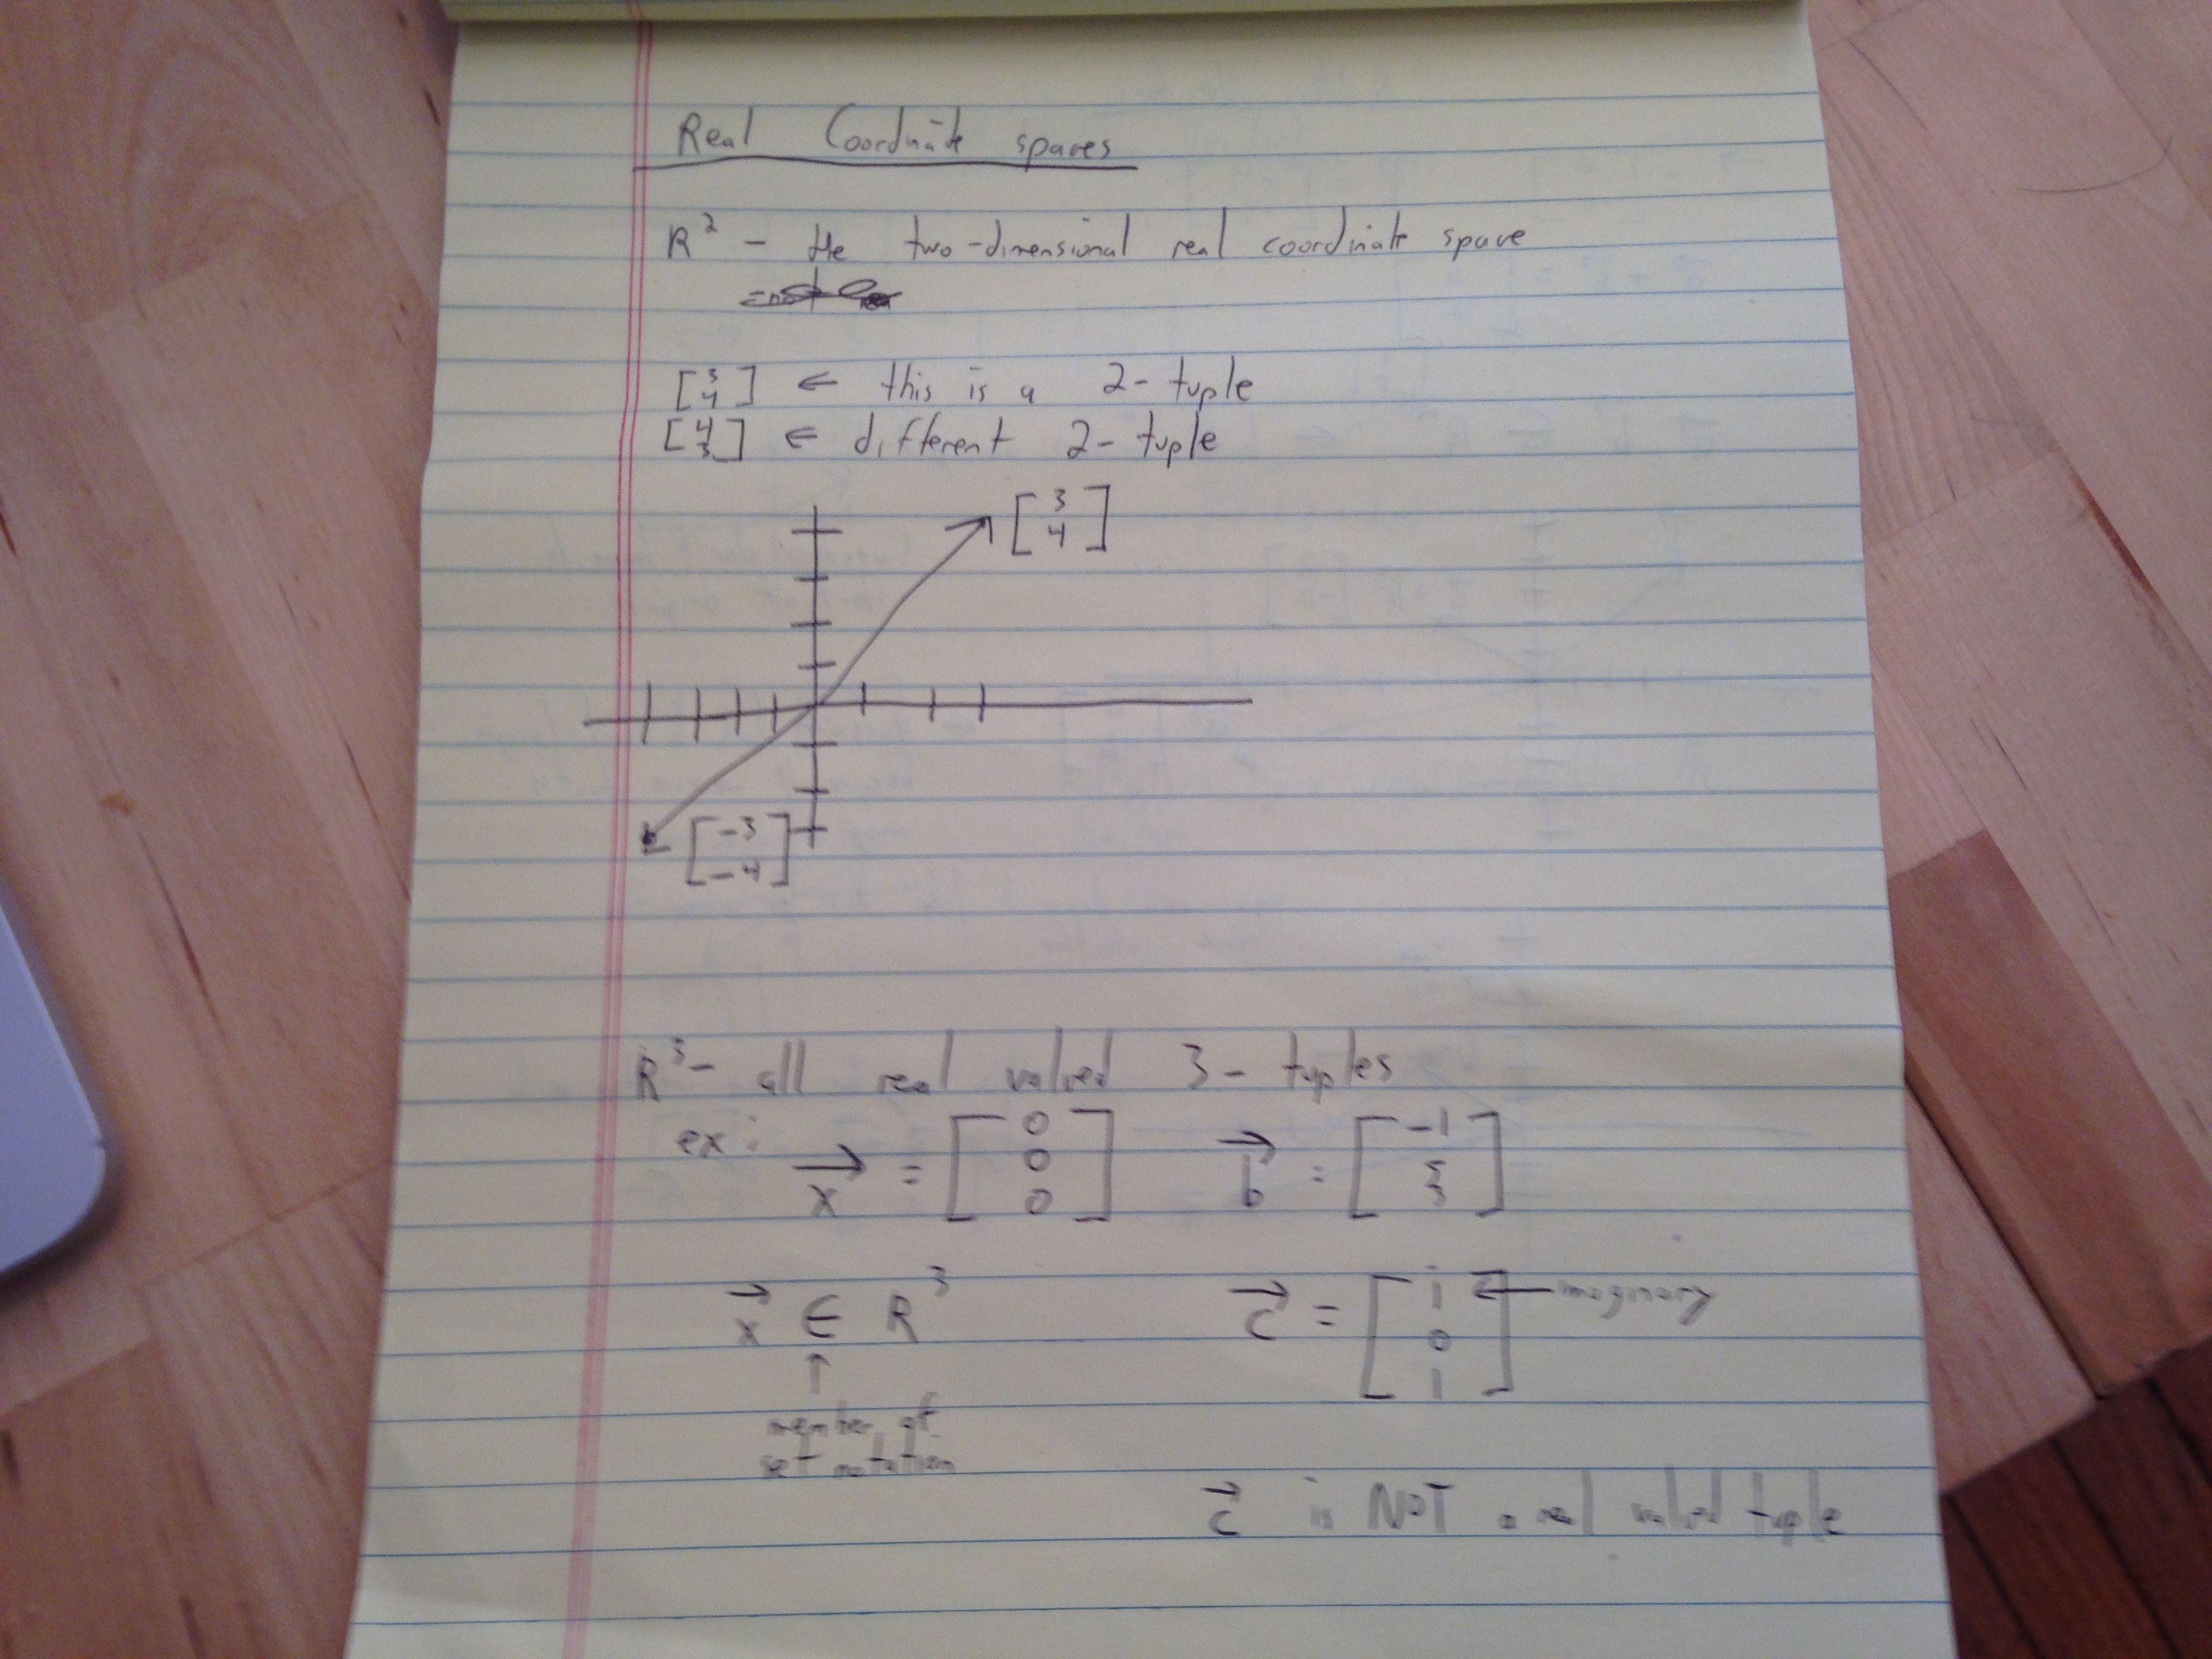 Real Coordinate spaces
R² - the two-dimensional real coordinate space
[3 4] ← this is a 2-tuple
[4 3] ← different 2-tuple
[3 4]
[-3 -4]
R³ - all real valued 3-tuples
ex:
x⃗ = [0 0 0] b⃗ = [-1 5]
x⃗ ∈ R³ c⃗ = [i 0 1] ← imaginary
↑
member of
set notation
c⃗ is NOT a real valued tuple